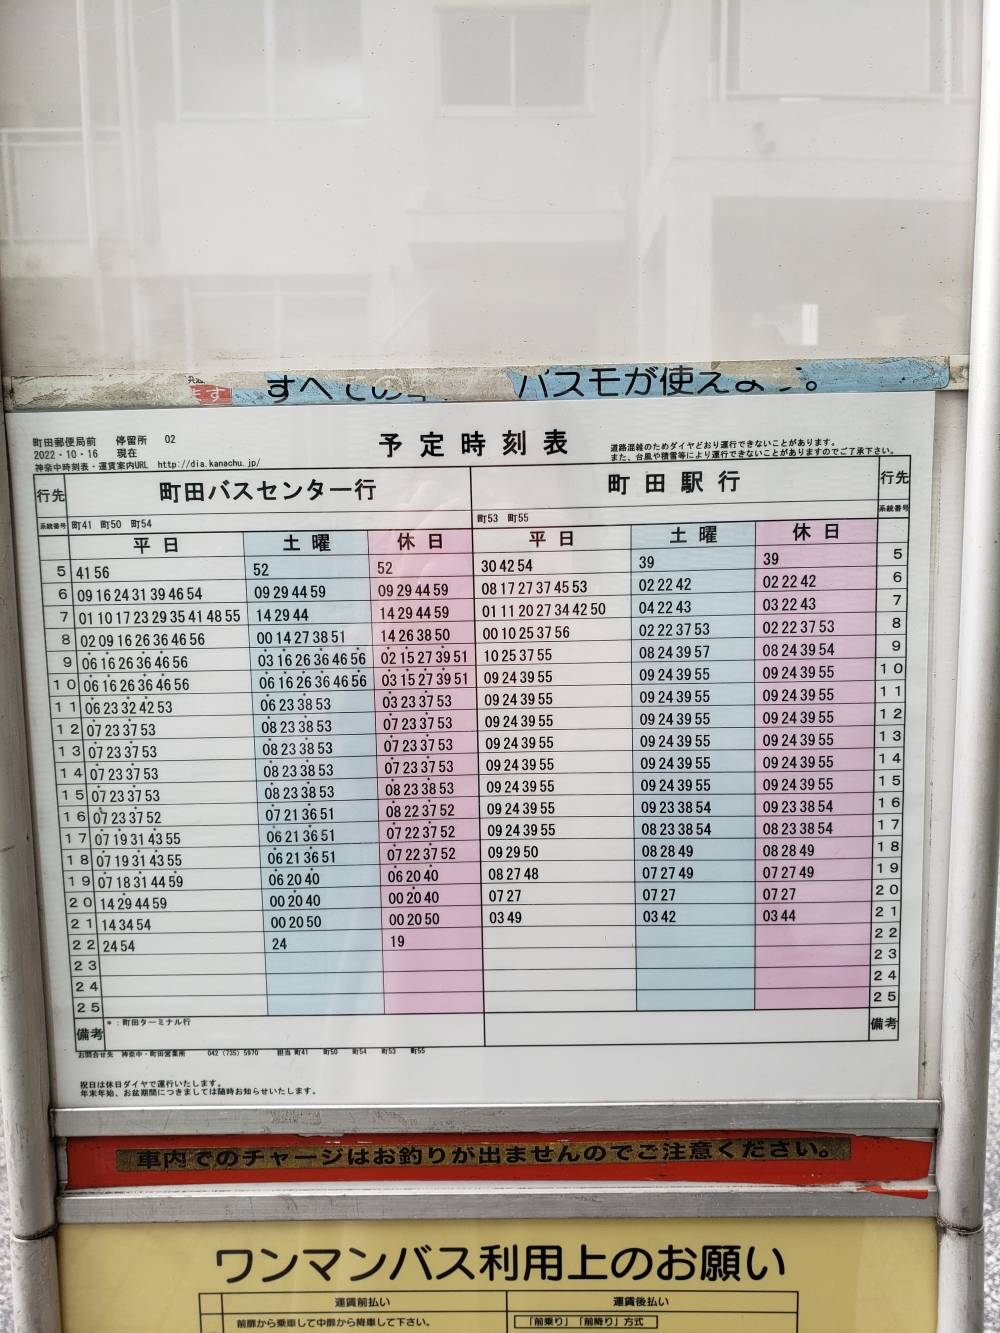 す
バスモが使えま
町田郵便局前 停留所 02
2022・10・16 現在
神奈中時刻表・運賃案内URL http://dia.kanachu.jp/
予定時刻表
道路混雑のためダイヤどおり運行できないことがあります。
また、台風や積雪等により運行できないことがありますのでご了承下さい。
行先 町田バスセンター行 町田駅行 行先
系統番号 町41 町50 町54 町53 町55 系統番号
平日 土曜 休日 平日 土曜 休日
5 41 56 52 52 30 42 54 39 39 5
6 09 16 24 31 39 46 54 09 29 44 59 09 29 44 59 08 17 27 37 45 53 02 22 42 02 22 42 6
7 01 10 17 23 29 35 41 48 55 14 29 44 14 29 44 59 01 11 20 27 34 42 50 04 22 43 03 22 43 7
8 02 09 16 26 36 46 56 00 14 27 38 51 14 26 38 50 00 10 25 37 56 02 22 37 53 02 22 37 53 8
9 06 16 26 36 46 56 03 16 26 36 46 56 02 15 27 39 51 10 25 37 55 08 24 39 57 08 24 39 54 9
10 06 16 26 36 46 56 06 16 26 36 46 56 03 15 27 39 51 09 24 39 55 09 24 39 55 09 24 39 55 10
11 06 23 32 42 53 06 23 38 53 03 23 37 53 09 24 39 55 09 24 39 55 09 24 39 55 11
12 07 23 37 53 08 23 38 53 07 23 37 53 09 24 39 55 09 24 39 55 09 24 39 55 12
13 07 23 37 53 08 23 38 53 07 23 37 53 09 24 39 55 09 24 39 55 09 24 39 55 13
14 07 23 37 53 08 23 38 53 07 23 37 53 09 24 39 55 09 24 39 55 09 24 39 55 14
15 07 23 37 53 08 23 38 53 08 23 38 53 09 24 39 55 09 24 39 55 09 24 39 55 15
16 07 23 37 52 07 21 36 51 08 22 37 52 09 24 39 55 09 23 38 54 09 23 38 54 16
17 07 19 31 43 55 06 21 36 51 07 22 37 52 09 24 39 55 08 23 38 54 08 23 38 54 17
18 07 19 31 43 55 06 21 36 51 07 22 37 52 09 29 50 08 28 49 08 28 49 18
19 07 18 31 44 59 06 20 40 06 20 40 08 27 48 07 27 49 07 27 49 19
20 14 29 44 59 00 20 40 00 20 40 07 27 07 27 07 27 20
21 14 34 54 00 20 50 00 20 50 03 49 03 42 03 44 21
22 24 54 24 19 22
23 23
24 24
25 25
備考 *：町田ターミナル行 備考
お問合せ先 神奈中・町田営業所 042 (735) 5970 担当 町41 町50 町54 町53 町55
祝日は休日ダイヤで運行いたします。
年末年始、お盆期間につきましては随時お知らせいたします。
車内でのチャージはお釣りが出ませんのでご注意ください。
ワンマンバス利用上のお願い
運賃前払い 運賃後払い
前扉から乗車して中扉から降車して下さい。 「前乗り」「前降り」方式